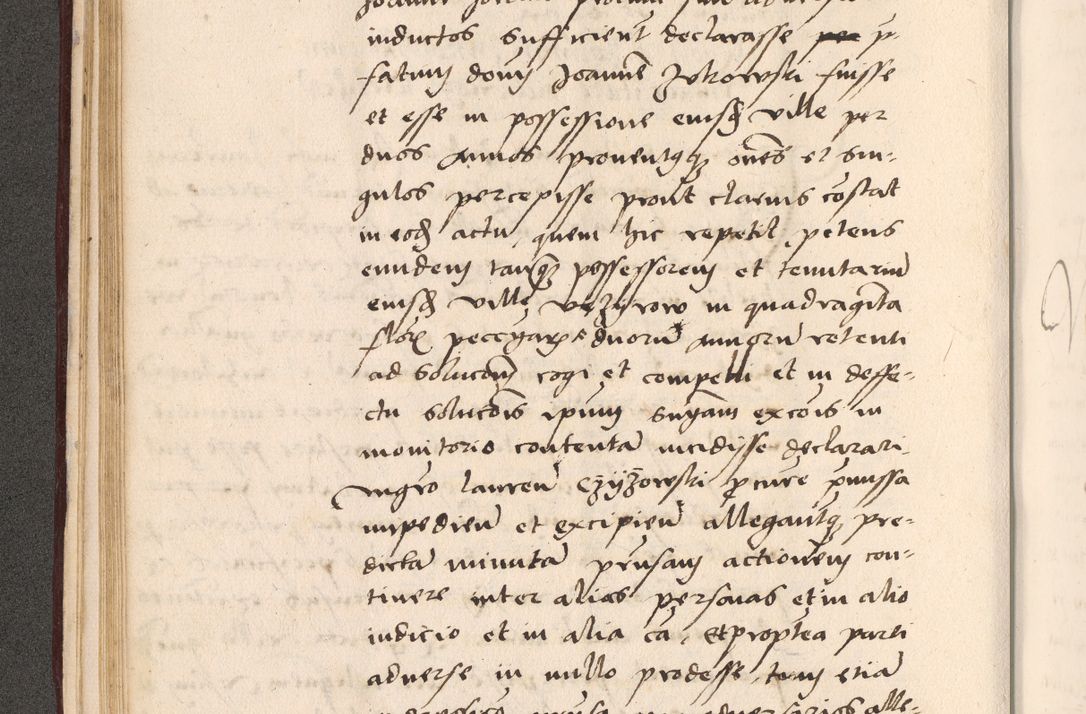 inductos sufficient declarasse p-
fatum domi Joanne Zukowski fuisse
et esse in possessione eiusd ville per
duos annos proventusq omes et sin-
gulos percepisse prout clarius costat
in eod actu, quem hic repetit, petens
eundem tanq possessorem et tenutariu
eiusd ville in quadraginta
flor duoru annoru retenti
ad solucom cogi et compelli et in deffe-
ctu solucois ipsum snyam excois in
monitorio contenta incidisse declarari.
mgro Lauren Czyzowski pcure pmissa
impedien et excipien allegantq pre-
dicta minuta prnsam actionem con-
tinere inter alias personas et in alio
iudicio et in alia ca, et proptea parti
adverse in nullo prodesse, tum etia